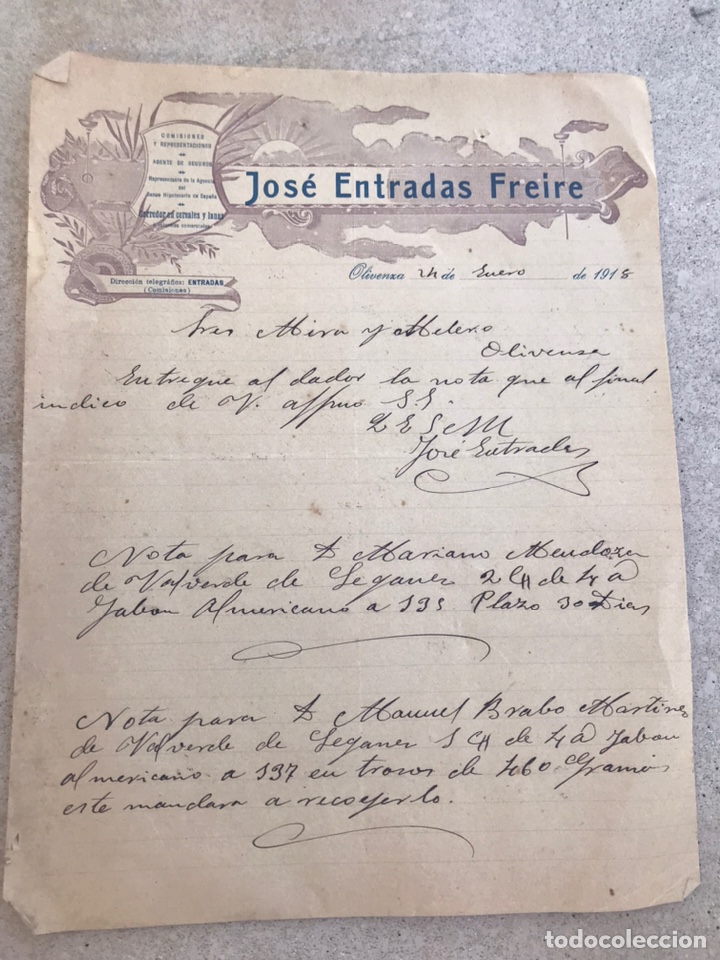 COMISIONES
Y REPRESENTACIONES
AGENTE DE SEGUROS
Representante de la Agencia
del
Banco Hipotecario de España
Corredor en cereales y lanas
José Entradas Freire
Dirección telegráfica: ENTRADAS
(Comisiones)
Olivenza 24 de Enero de 1918
Sres Mira y Melero
Olivensa
Entregue al dador la nota que al final
indico de V. affmo S.S.
José Entradas
Nota para D Mariano Mendoza
de Valverde de Leganes 2 C/ de 4 @
Jabon Almericano a 195 Plazo 30 Dias
Nota para D Manuel Brabo Martines
de Valverde de Leganes 1 C/ de 4 @ Jabon
almericano a 197 en trosos de 460 Gramos
este mandara a recojerlo.
todocoleccion